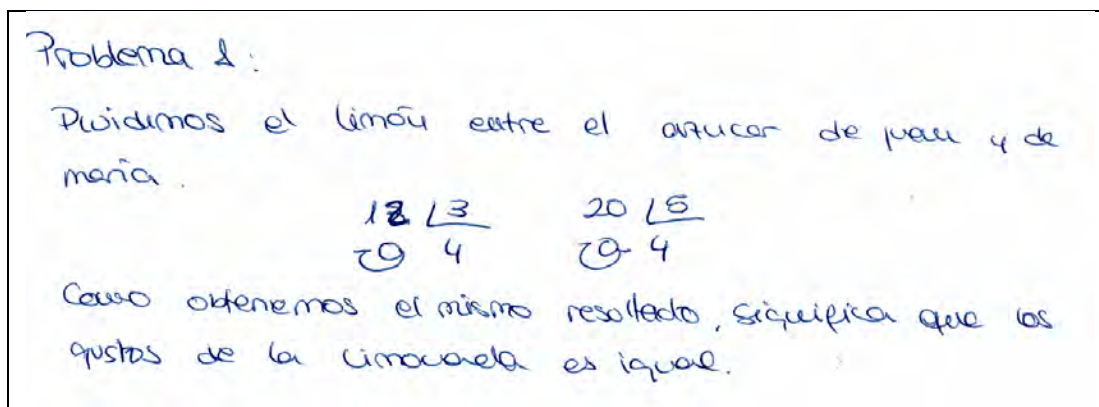 Problema 1:
Dividimos el limón entre el azucar de Juan y de
maría.
12 | 3 20 | 5
0 4 0 4
Como obtenemos el mismo resultado, significa que los
gustos de la limonada es igual.